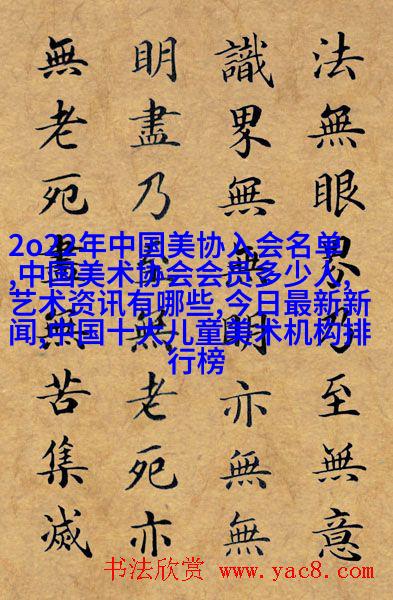 法無眼界乃至無意
識界無無明亦無無
明盡乃至無老死亦
無老死盡無苦集滅
2o22年中国美协入会名单
,中国美术协会会员多少人,
艺术资讯有哪些,今日最新新
闻,中国十大儿童美术机构排
行榜
书法欣赏 www.yac8.com